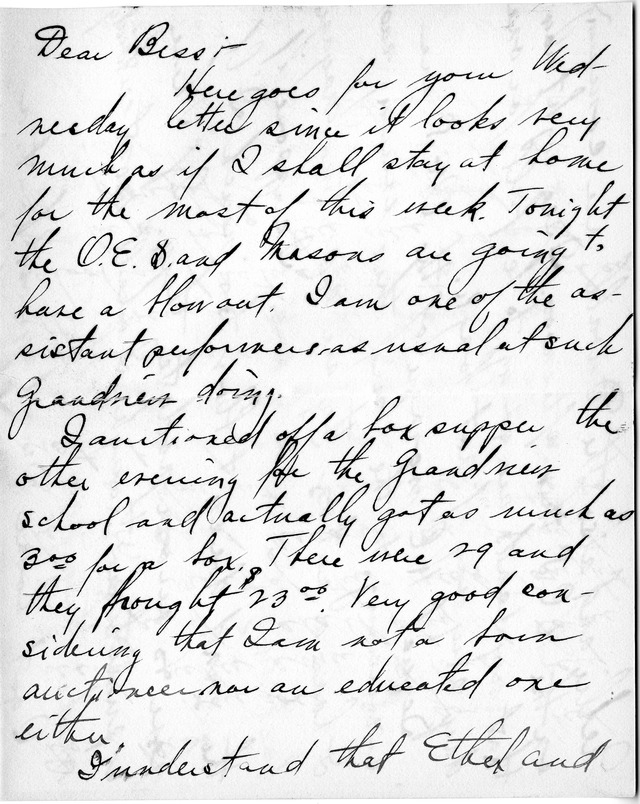 Dear Bess:-
Here goes for your Wed-
nesday letter since it looks very
much as if I shall stay at home
for the most of this week. Tonight
the O.E.S. and Masons are going to
have a blowout. I am one of the as-
sistant performers as usual at such
Grandview doing.
I auctioned off a box supper the
other evening for the Grandview
school and actually got as much as
3 00 for a box. There were 29 and
they brought $23 00. Very good con-
sidering that I am not a born
auctioneer nor an educated one
either.
I understand that Ethel and